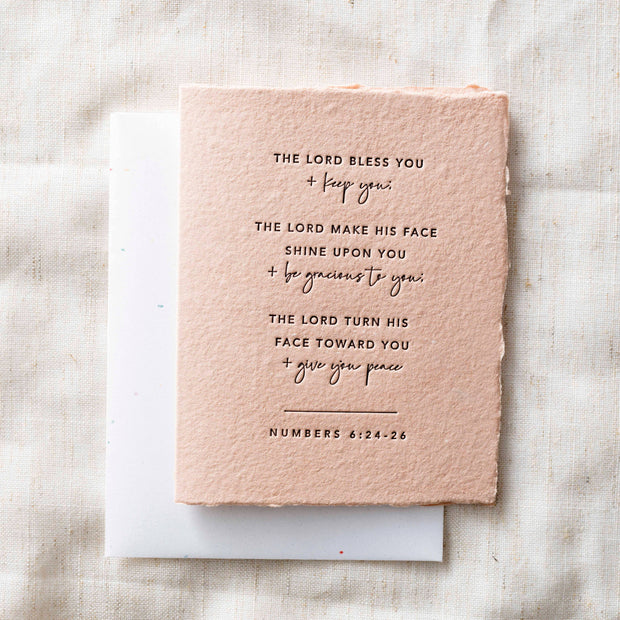 THE LORD BLESS YOU
+ keep you;
THE LORD MAKE HIS FACE
SHINE UPON YOU
+ be gracious to you;
THE LORD TURN HIS
FACE TOWARD YOU
+ give you peace
NUMBERS 6:24-26